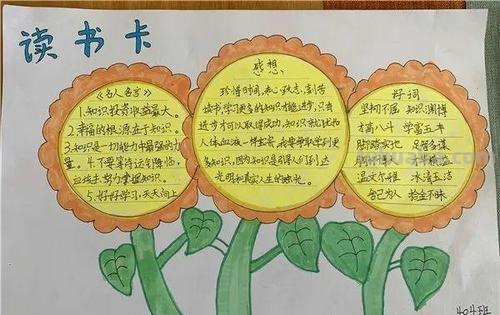 读书卡
《名人名言》
1.知识投资收益最大。
2.幸福的根源在于知识。
3.知识是一切能力中最强的力
量。4.不要等待
努力掌握知识。
5.好好学习,天天向上
感想
珍惜时间,
读书,学习更多的知识才能进步,只有
进步才可以取得成功,知识就
人体血液一样宝贵,
多知识,因为知识是引导人们到达
光明和真实人生的
好词
坚韧不屈 知识渊博
才高八斗 学富五车
脚踏实地 足智多谋
温文尔雅 冰清玉洁
舍己为人 拾金不昧
404班